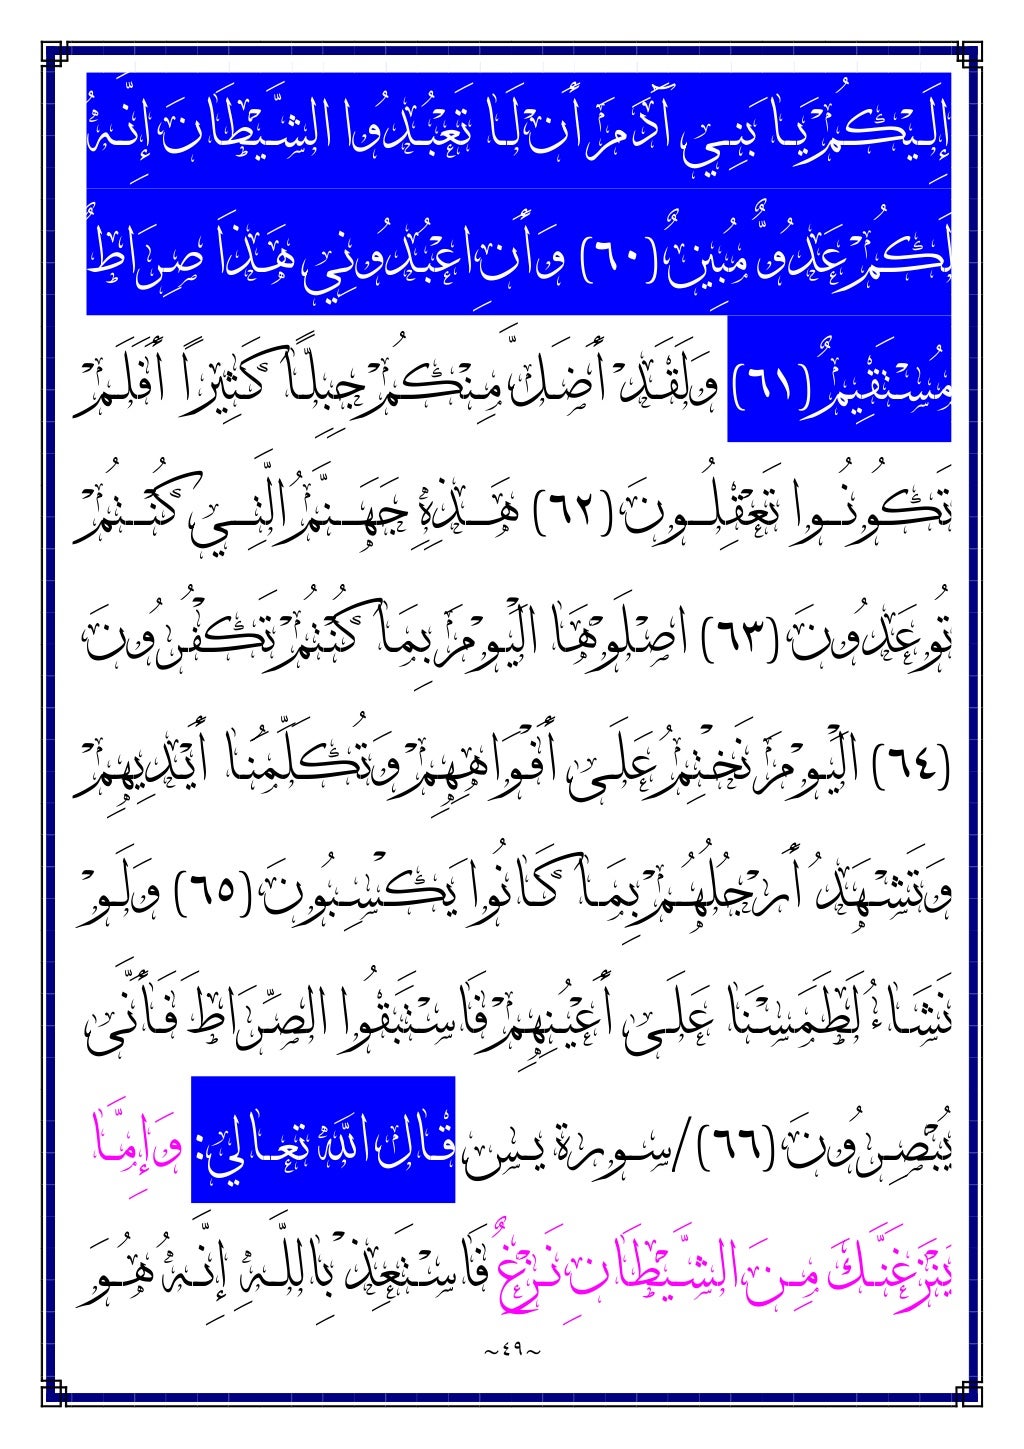 إِلَيْكُمْ يَا بَنِي آَدَمَ أَنْ لَا تَعْبُدُوا الشَّيْطَانَ إِنَّهُ
لَكُمْ عَدُوٌّ مُبِينٌ (٦٠) وَأَنِ اعْبُدُونِي هَذَا صِرَاطٌ
مُسْتَقِيمٌ (٦١) وَلَقَدْ أَضَلَّ مِنْكُمْ جِبِلًّا كَثِيرًا أَفَلَمْ
تَكُونُوا تَعْقِلُونَ (٦٢) هَذِهِ جَهَنَّمُ الَّتِي كُنْتُمْ
تُوعَدُونَ (٦٣) اصْلَوْهَا الْيَوْمَ بِمَا كُنْتُمْ تَكْفُرُونَ
(٦٤) الْيَوْمَ نَخْتِمُ عَلَى أَفْوَاهِهِمْ وَتُكَلِّمُنَا أَيْدِيهِمْ
وَتَشْهَدُ أَرْجُلُهُمْ بِمَا كَانُوا يَكْسِبُونَ (٦٥) وَلَوْ
نَشَاءُ لَطَمَسْنَا عَلَى أَعْيُنِهِمْ فَاسْتَبَقُوا الصِّرَاطَ فَأَنَّى
يُبْصِرُونَ (٦٦)/سورة يس قال الله تعالي: وَإِمَّا
يَنْزَغَنَّكَ مِنَ الشَّيْطَانِ نَزْغٌ فَاسْتَعِذْ بِاللَّهِ إِنَّهُ هُوَ
~٤٩~